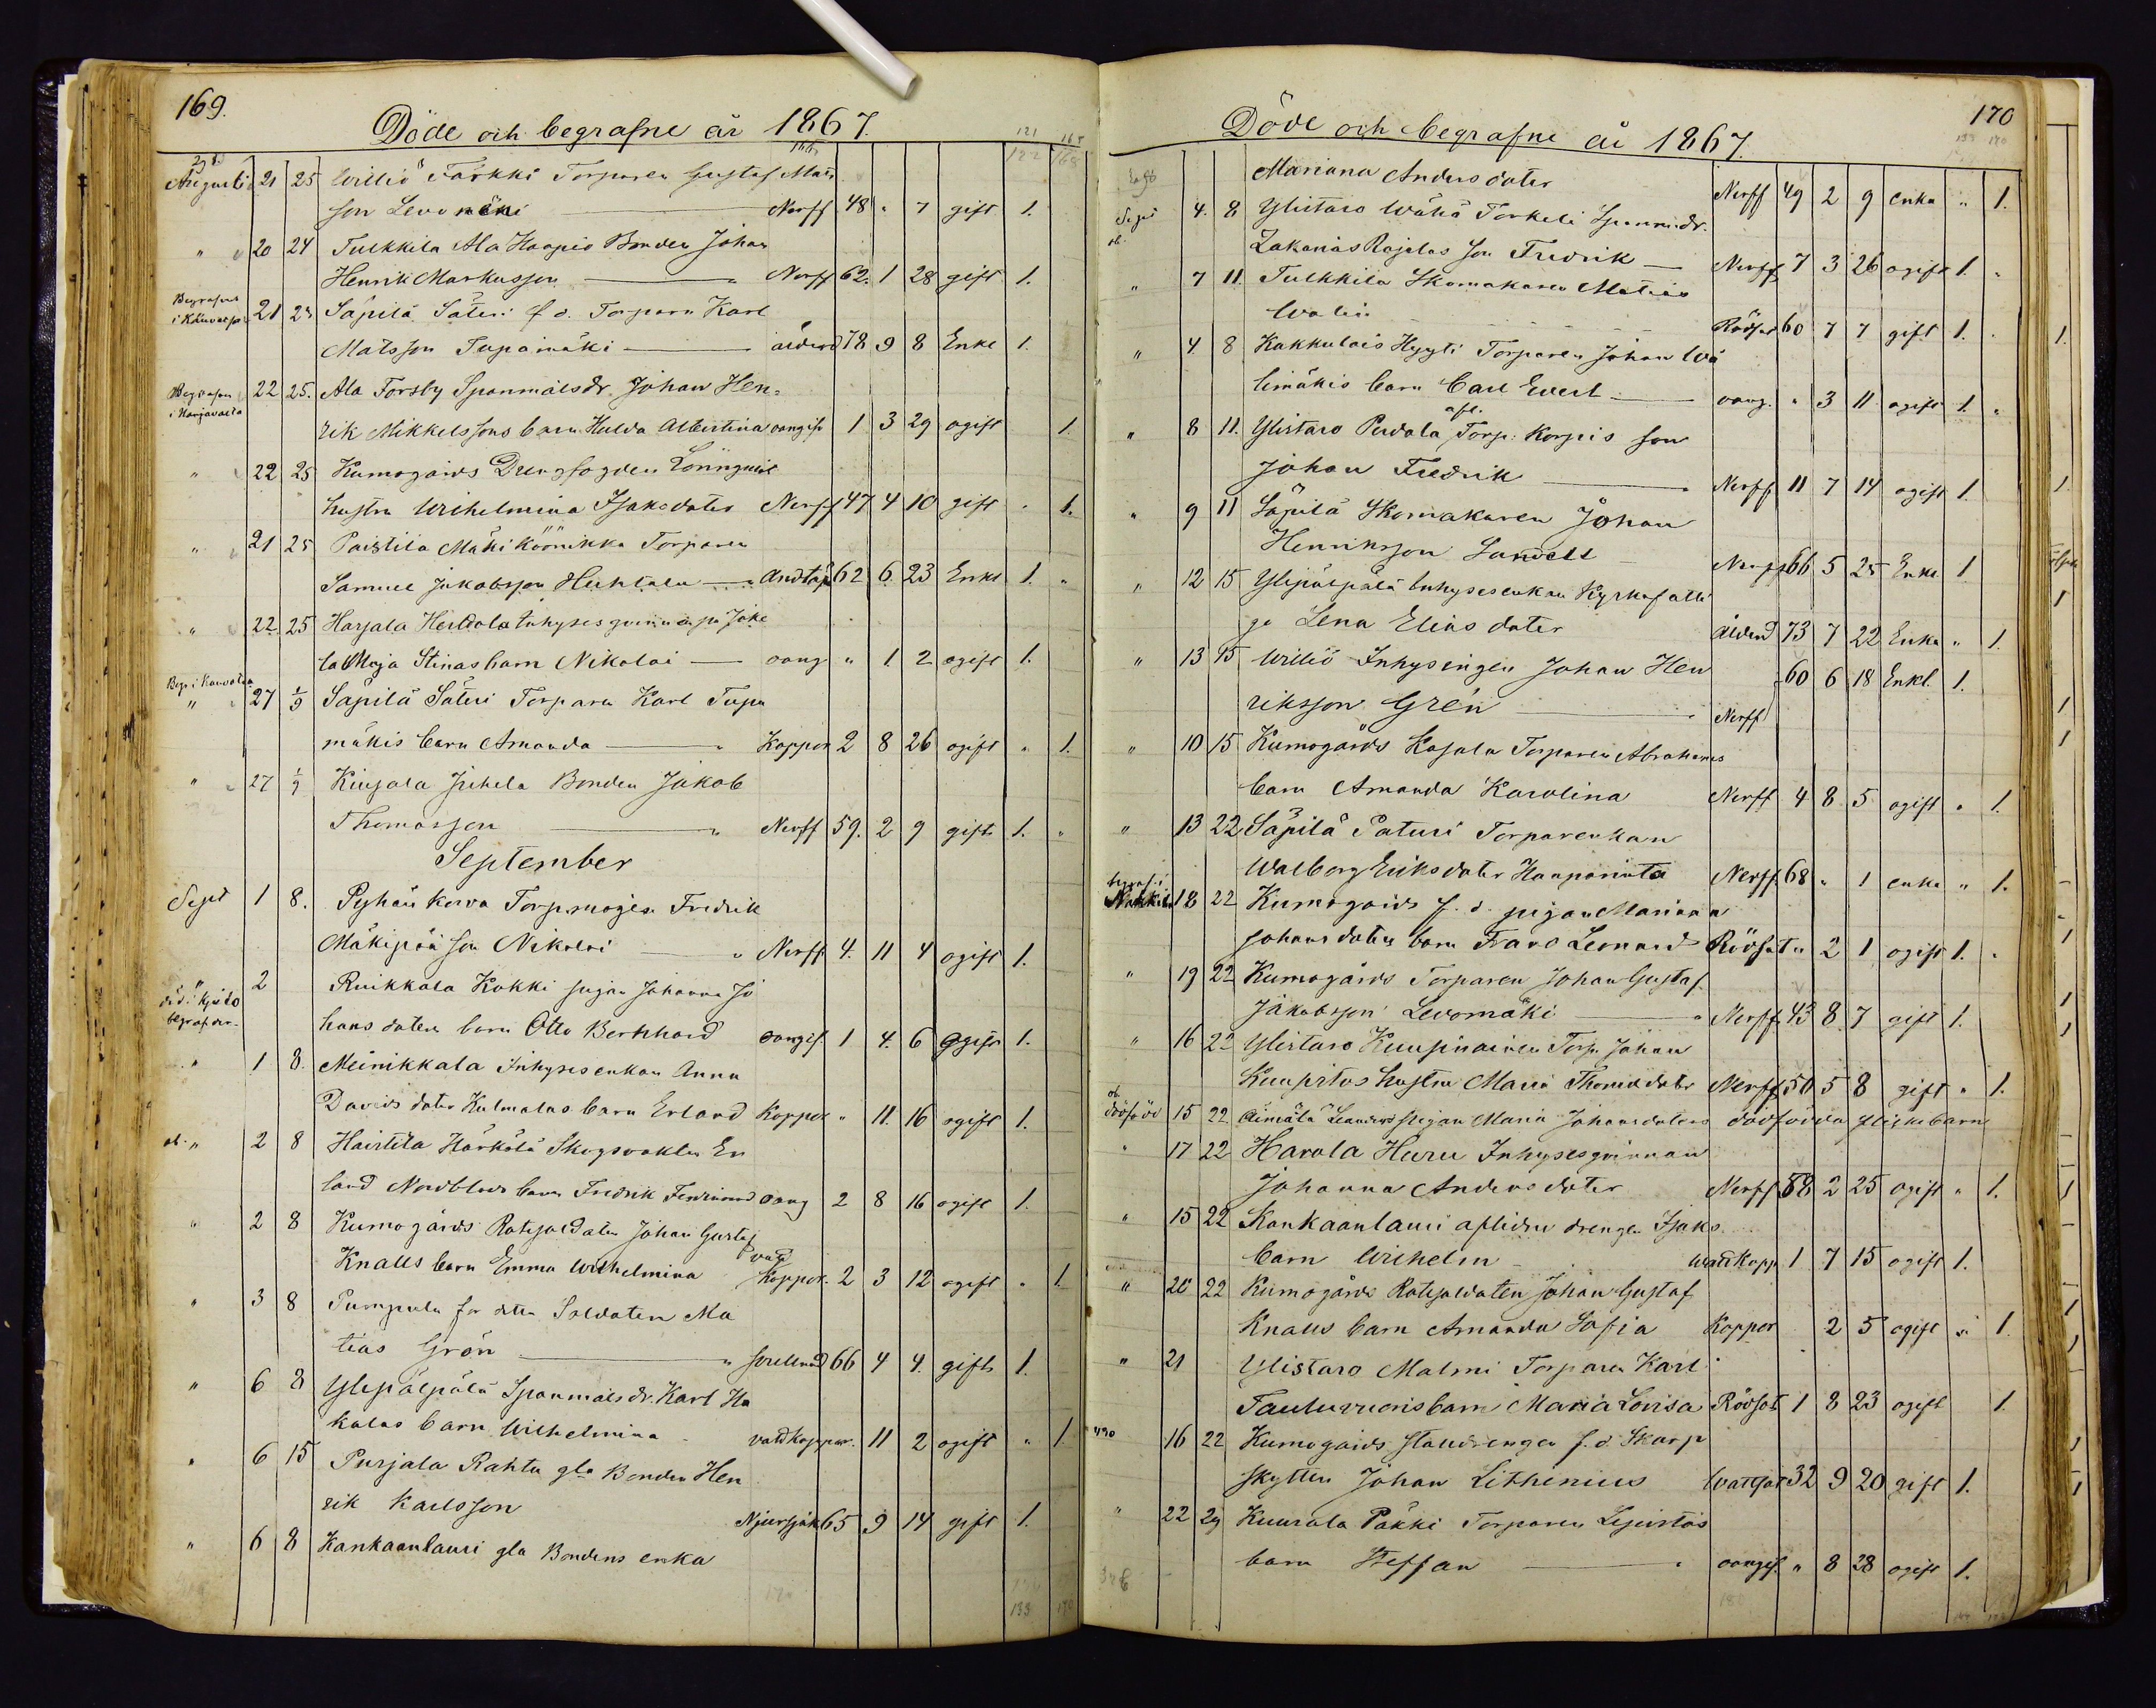 169.
Döde och begrafne år 1867.
Augusti 21 25 Williö Färkki Torparen Gustaf Mats
son Levomäki Nerff 48 " 7 gift 1.
" 20 24 Tulkkila Ala Haapio Bonden Johan
Henrik Markusson Nerff 62. 1 28 gift 1.
Begrafven i 21 25 Säpilä Säteri f d. Torparn Karl
Matsson Tupamäki ålderd 78 9 8 Enkl 1.
Begrafven i Harjavalta 22 25. Ala Forsby Spanmålsdr. Johan Hen=
rik Mikkelssons barn Hulda Albertina oangif 1 3 29 ogift 1.
" 22 25 Kumogårds Drengfogden Lönnqvist
hustru Wilhelmina Isaksdoter Nerff 47 4 10 gift " 1.
" 21 25 Paistila Mäki Köönikka Torparen
Samuel Jakobsson Huhtala Andtäp 62 6 23 Enkl 1. "
" 22 25 Harjala Heildola Inhyses qvinnas på Joke
la Maja Stinas barn Nikolai oang " 1 2 ogift 1.
" 27 1/9 Säpilä Säteri Torparn Karl Tupa
mäkis barn Amanda Koppor 2 8 26 ogift " 1.
" 27 1/9 Kiusala Juhela Bonden Jakob
Thomasson Nerff 59. 2 9 gift 1. "
September
Sept 1 8. Pyhänkorva Torp.mågen Fredrik
Mäkipää son Nikolai Nerff 4. 11 4 ogift 1.
" 2 Ruikkala Kokki pigan Johanna Jo
hans doters barn Otto Bernhard oangif. 1 4. 6 ogift 1.
" 1 8. Meinikkala Inhyses enkan Anna
Davids doter Kulmalas barn Erland Koppor " 11. 16 ogift 1.
" 2 8 Hairtila Härkälä Skogsvakten Er
land Nordblads barn Fredrik Ferdinand oang 2 8 16 ogift 1.
" 2 8 Kumogårds Rotesoldaten Johan Gustaf
Knalls barn Emma Wilhelmina Koppor. 2 3 12 ogift " 1.
" 3 8 Pumpula för detta Soldaten Ma
tias Grön 66 4 4. gift 1.
" 6 8 Ylipälpälä Spanmålsdr. Karl Ha
kalas barn Wilhelmina vattkoppor. 11 2 ogift " 1.
" 6 15 Pirjala Rahtu gla Bonden Hen
rik Karlsson Njursjuk 65 9 14 gift 1.
" 6 8 Kankaanlauri gla Bondens enka
170
Döde och begrafne år 1867.
Mariana Anders doter Nerff 49 2 9 enka " 1.
Sept 4. 8 Ylistaro Wähä Torkeli Spanm.dr.
Zakarias Rajalas son Fredrik Nerff 7 3 26 ogift 1. "
" 7 11 Tulkkila Skomakaren Matias
Walin Rödsot 60 7 7 gift 1.
" 4 8 Kakkulais Hyyti Torparen Johan Wä
limäkis barn Carl Evert oang. " 3 11 ogift 1. "
" 8 11. Ylistaro Perdala afl. Torp. Korpis son
Johan Fredrik Nerff 11 7 14 ogift 1
" 9 11 Säpilä Skomakaren Johan
Henriksson Sandell Nerff 66 5 25 Enkl 1
" 12 15 Ylipälpälä Inhysesenkan Kyrkofatti
ga Lena Elias doter ålderd 73 7 22 Enka " 1.
" 13 15 Williö Inhysingen Johan Hen 60 6 18 Enkl. 1.
riksson Grén Nerff
" 10 15 Kumogårds Kasala Torparen Abrahams
barn Amanda Karolina Nerff 4 8 5 ogift " 1.
" 13 22 Säpilä Säteri Torparenkan
Walborg Eriksdoter Haaparinta Nerff. 68 " 1 enka " 1.
begraf. i Nakkila 18 22 Kumogårds f. d. pigan Mariana
Johansdoters barn Frans Leonard Rödsot " 2 1 ogift 1. "
" 19 22 Kumogårds Torparen Johan Gustaf
Jakobsson Levomäki Nerff. 43 8 7 gift 1.
" 16 22 Ylistaro Kuusinainen Torp. Johan
Kuupitos hustru Maria Thomasdoter Nerff 50 5 8 gift " 1.
dödfödd 15 22 Äimälä Leanders pigan Maria Johansdoters dödfödda flickebarn
" 17 22 Harola Huru Inhysesqvinnan
Johanna Anders doter Nerff 58 2 25 ogift " 1.
" 15 22 Kankaanlauri aflidne drengen Isaks
barn Wilhelm wattkopp 1 7 15 ogift 1.
" 20 22 Kumogårds Rotesoldaten Johan Gustaf
Knalls barn Amanda Sofia Koppor 2 5 ogift " 1.
" 21 Ylistaro Malmi Torparen Karl
Tauluvuoris barn Maria Lovisa Rödsot 1 8 23 ogift 1.
16 22 Kumogårds Stalldrengen f. d. Skarp
skytten Johan Lithenius Wattsot 32 9 20 gift 1.
" 22 29 Kuurola Pakki Torparen Lepistös
barn Steffan oangif. " 8 28 ogift 1.